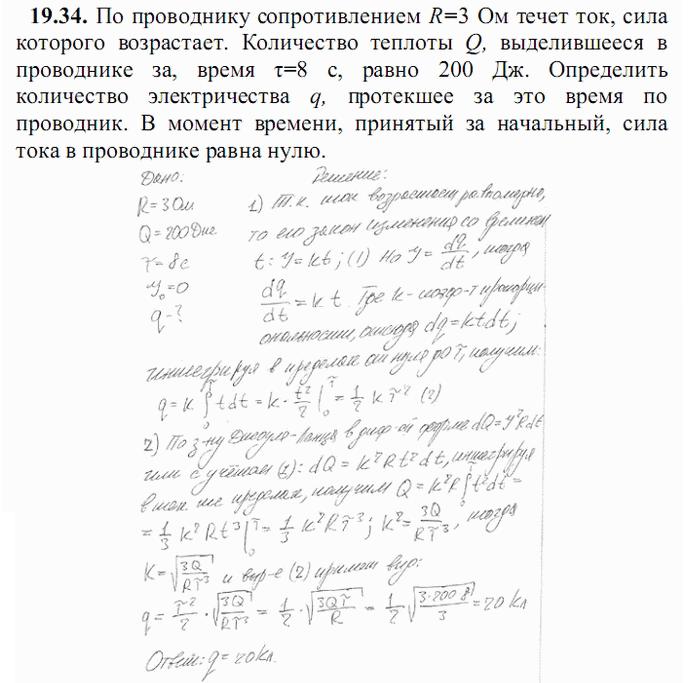 19.34. По проводнику сопротивлением R=3 Ом течет ток, сила
которого возрастает. Количество теплоты Q, выделившееся в
проводнике за, время τ=8 с, равно 200 Дж. Определить
количество электричества q, протекшее за это время по
проводник. В момент времени, принятый за начальный, сила
тока в проводнике равна нулю.
Дано:
R=3Ом
Q=200Дж
τ=8с
У₀=0
q-?
Решение:
1) Т.к. ток возрастает равномерно,
то его закон изменения со временем
t: У=kt; (1) Но У=dq/dt, тогда
dq/dt=kt. Где k-коэф-т пропорци-
ональности, отсюда dq=ktdt;
интегрируя в пределах от нуля до τ, получим:
q=k∫₀^τ tdt=k·t²/2|₀^τ=1/2 kτ² (2)
2) По з-ну Джоуля-Ленца в диф-ой форме dQ=У²Rdt
или с учётом (1): dQ=k²Rt²dt, интегрируя
в тех же пределах, получим Q=k²R∫₀^τ t²dt=
=1/3 k²Rt³|₀^τ=1/3 k²Rτ³; k²=3Q/Rτ³, тогда
K=√(3Q/Rτ³) и выр-е (2) примет вид:
q=τ²/2·√(3Q/Rτ³)=1/2·√(3Qτ/R)=1/2√(3·200·8/3)=20 Кл
Ответ: q=20Кл.